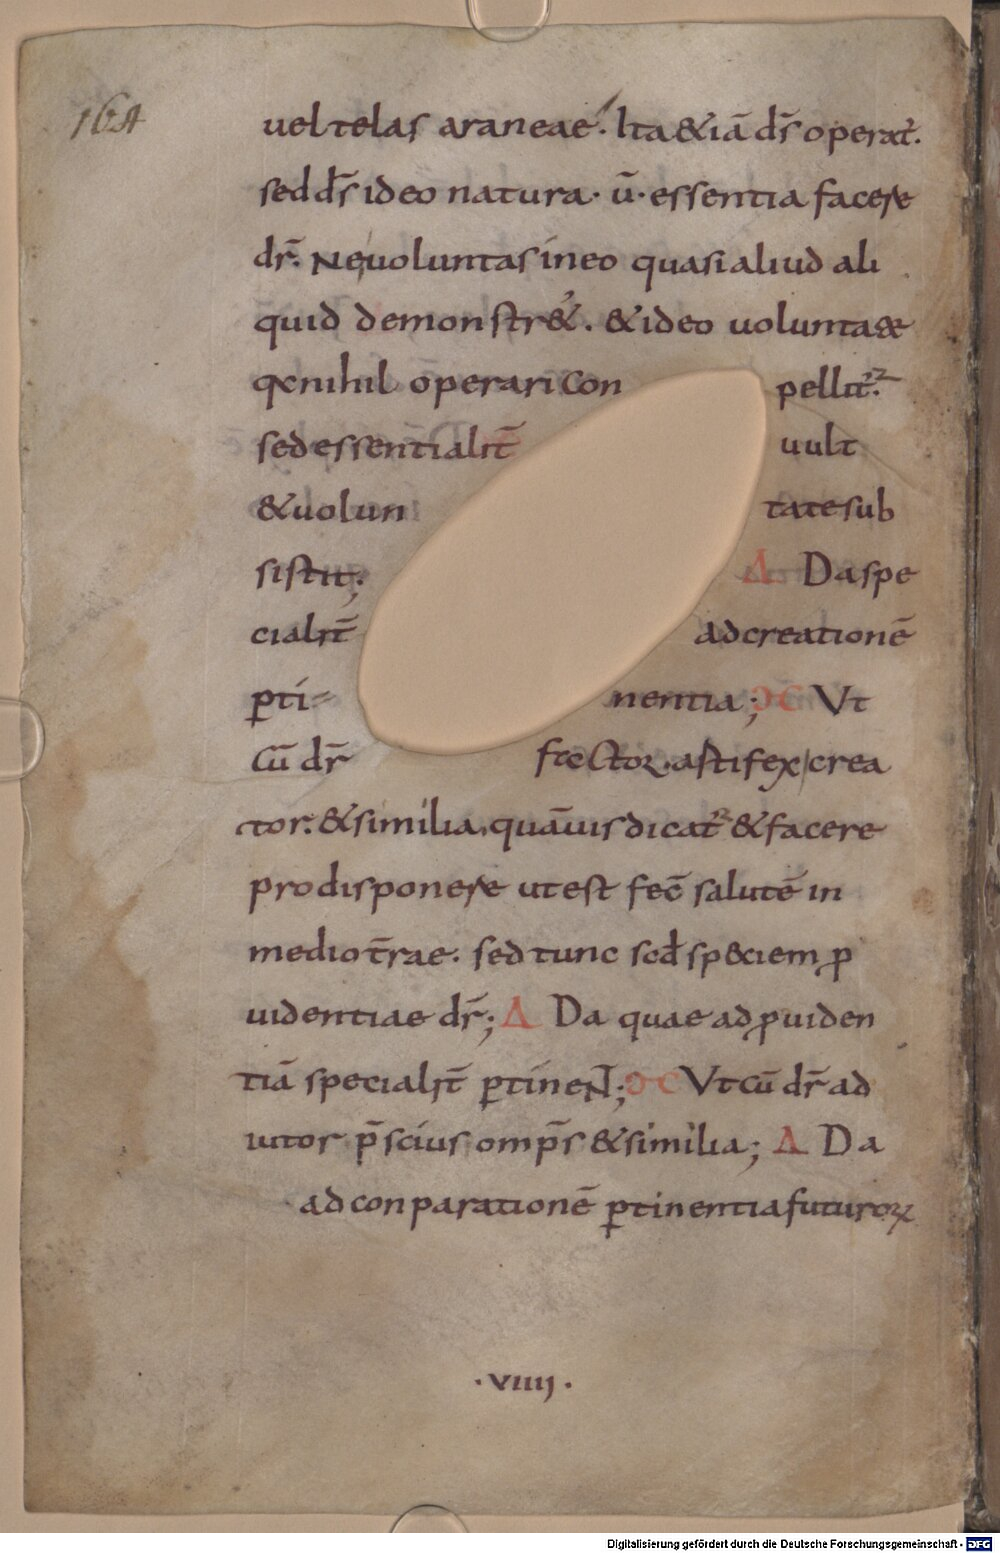 164
uel telas araneae. Ita &iā dr̄ operat̉.
sed dr̄ ideo natura · ū · essentia facere
dr̄. Ne uoluntas in eo quasi aliud ali
quid demonstr&. & ideo uoluntate
nihil operari con pellit᷑
sed essentialit̄ uult
& uolun tate sub
sistit; Δ Da spe
cialit̄ ad creationē
ꝑti- nentia; ƆC Vt
cū dr̄ factor. artifex, crea
tor. & similia, quāuis dicat᷑ & facere
pro disponere ut est fec̄ salutē in
medio t̄rae. sed tunc scd̄ speciem ꝓ
uidentiae dr̄; Δ Da quae ad ꝓuiden
tiā specialit̄ ꝑtineNT; ƆC Vt cū dr̄ ad
iutor p̄scius omp̄s & similia; Δ Da
ad conparationē ꝑtinentia futuroꝝ
· VIIII ·
Digitalisierung gefördert durch die Deutsche Forschungsgemeinschaft - DFG